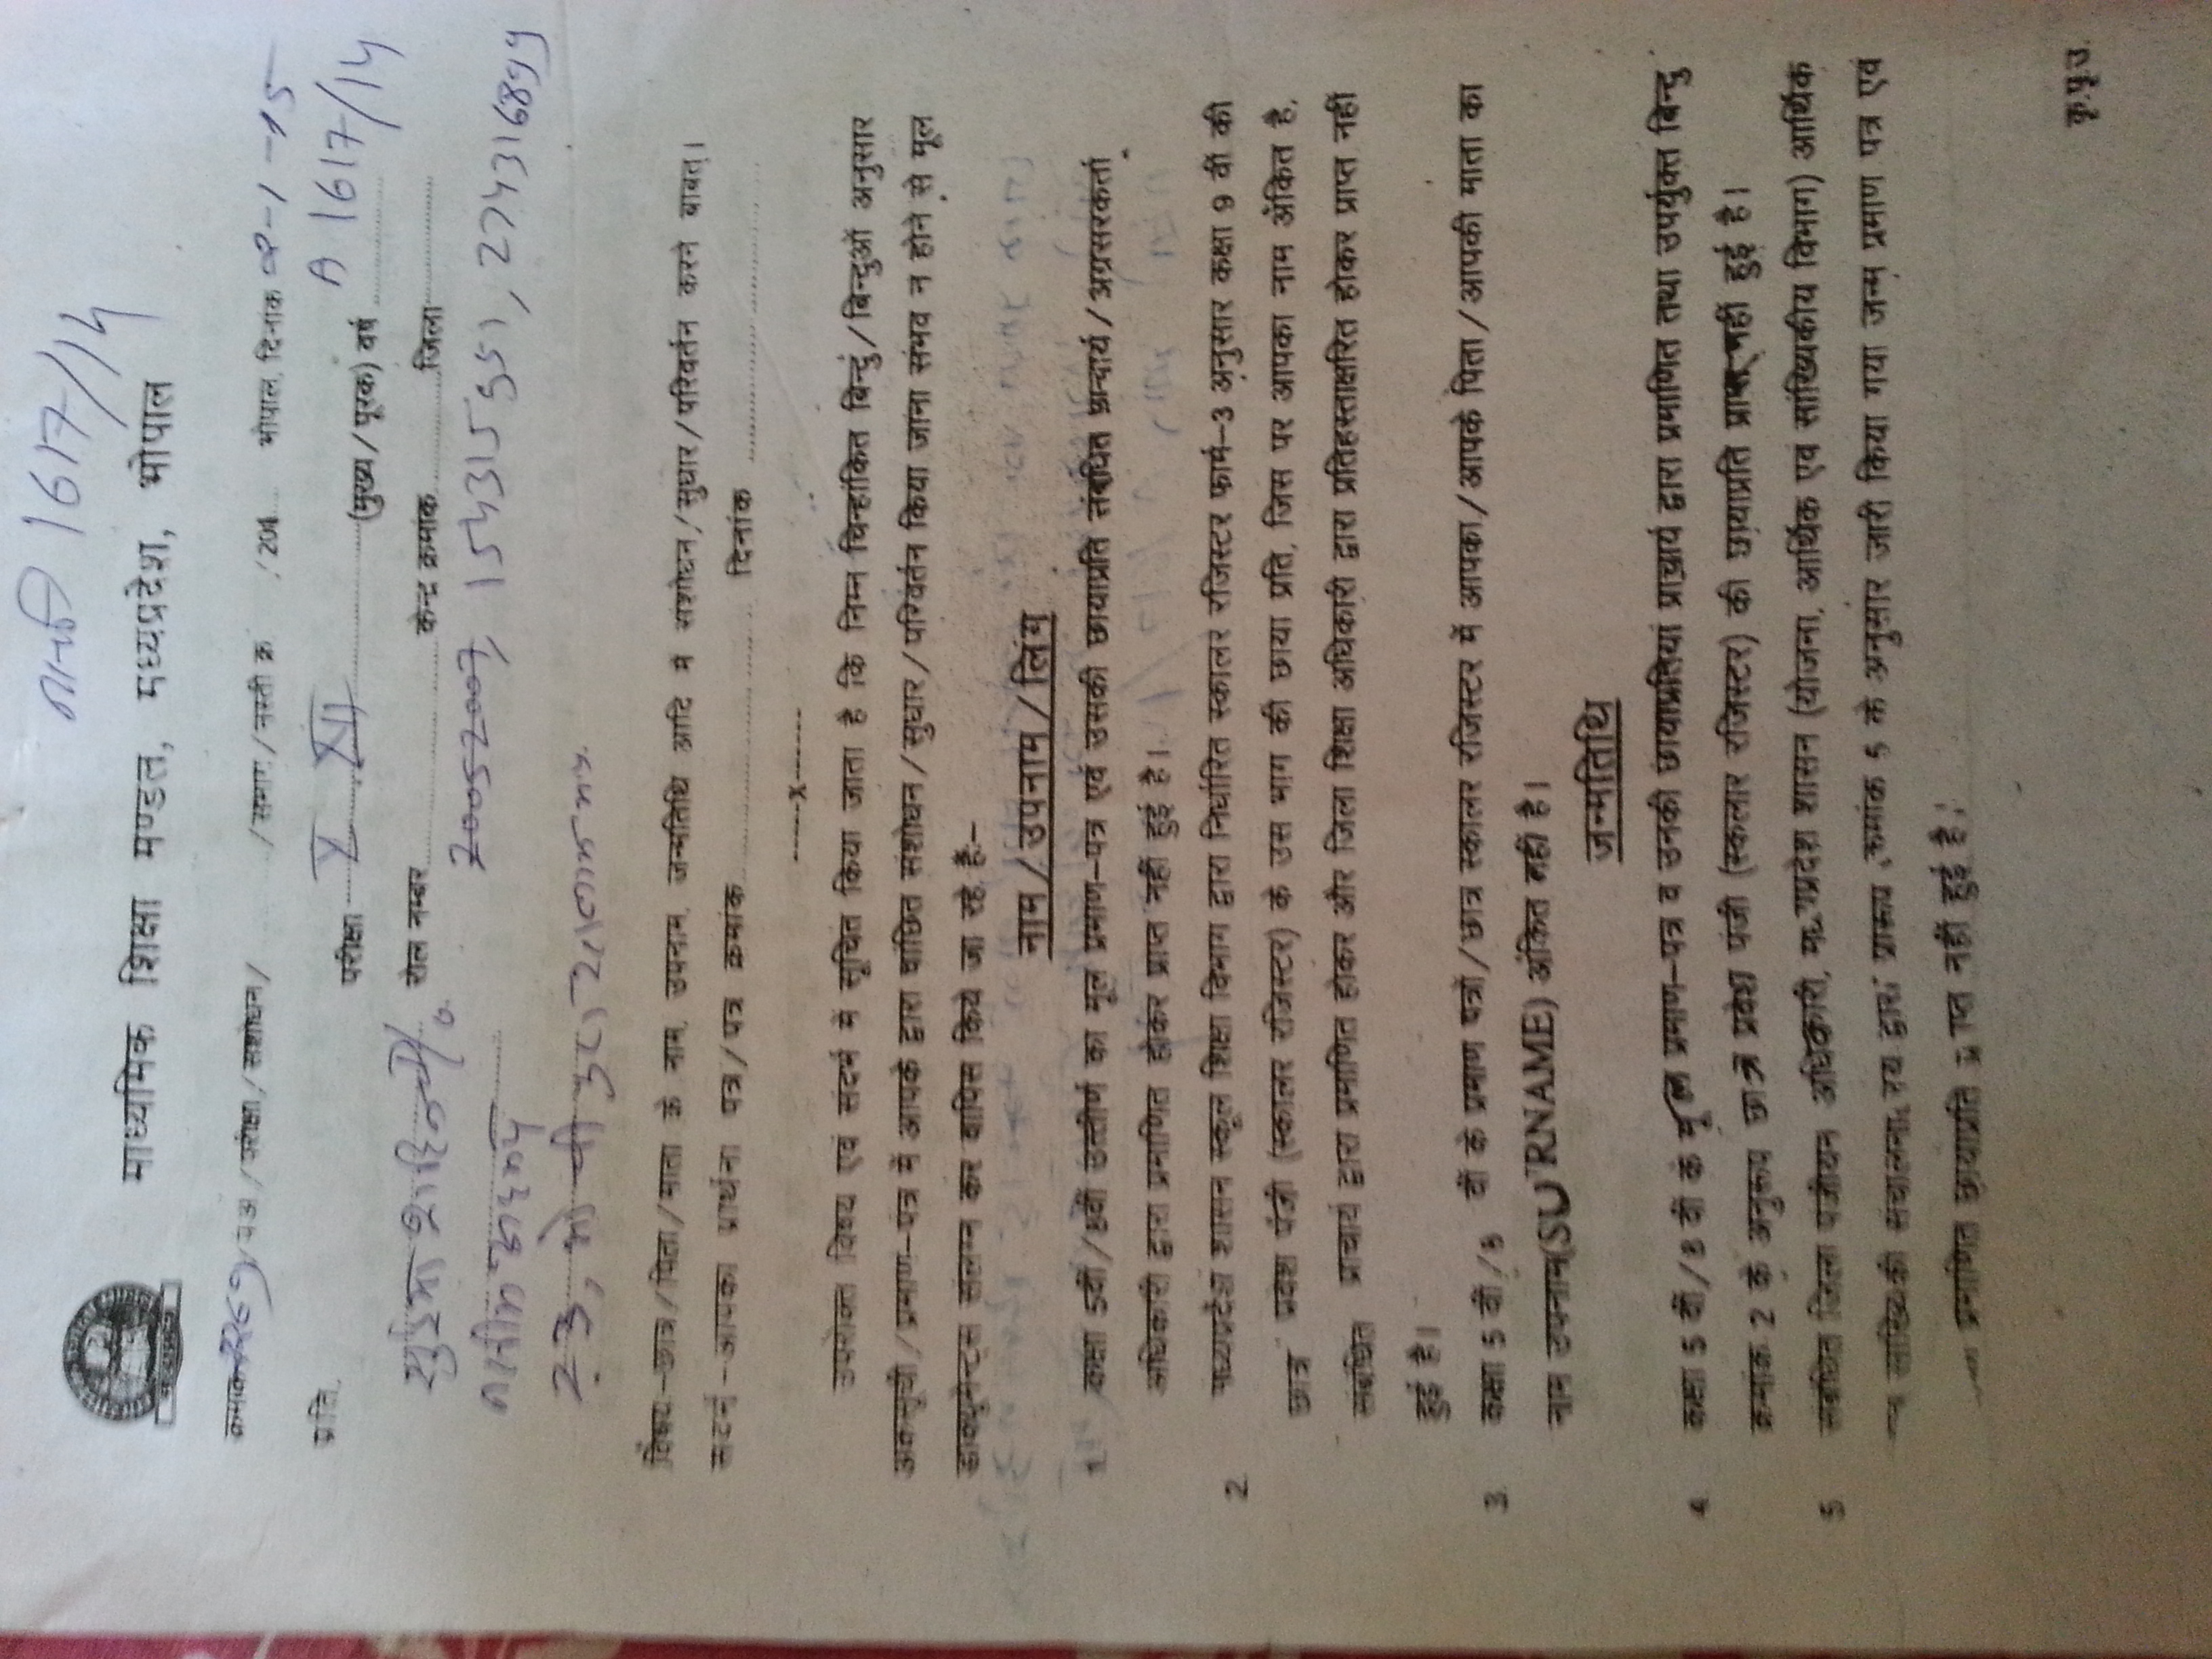 A 1617/14
माध्यमिक शिक्षा मण्डल, मध्यप्रदेश, भोपाल
/ परीक्षा / संशोधन / / नस्ती क्र. / 201 भोपाल, दिनांक
प्रति,
परीक्षा X XII (मुख्य / पूरक) वर्ष A 1617/14
रोल नम्बर केन्द्र क्रमांक जिला
154315551, 224316859
विषय:-छात्र / पिता / माता के नाम, उपनाम, जन्मतिथि आदि में संशोधन / सुधार / परिवर्तन करने बाबत्।
संदर्भ:-आपका प्रार्थना पत्र / पत्र क्रमांक दिनांक
-----x-----
उपरोक्त विषय एवं संदर्भ में सूचित किया जाता है कि निम्न चिन्हांकित बिन्दु / बिन्दुओं अनुसार
अंकसूची / प्रमाण-पत्र में आपके द्वारा वांछित संशोधन / सुधार / परिवर्तन किया जाना संभव न होने से मूल
डाक्यूमेन्ट्स संलग्न कर वापिस किये जा रहे हैं:-
नाम / उपनाम / लिंग
1 कक्षा 5वीं / 8वीं उत्तीर्ण का मूल प्रमाण-पत्र एवं उसकी छायाप्रति संबंधित प्राचार्य / अग्रसरकर्ता
अधिकारी द्वारा प्रमाणित होकर प्राप्त नहीं हुई है।
2. मध्यप्रदेश शासन स्कूल शिक्षा विभाग द्वारा निर्धारित स्कालर रजिस्टर फार्म-3 अनुसार कक्षा 9 वीं की
छात्र प्रवेश पंजी (स्कालर रजिस्टर) के उस भाग की छाया प्रति, जिस पर आपका नाम अंकित है,
संबंधित प्राचार्य द्वारा प्रमाणित होकर और जिला शिक्षा अधिकारी द्वारा प्रतिहस्ताक्षरित होकर प्राप्त नहीं
हुई है।
3. कक्षा 5 वीं / 8 वीं के प्रमाण पत्रों / छात्र स्कालर रजिस्टर में आपका / आपके पिता / आपकी माता का
नाम उपनाम(SURNAME) अंकित नहीं है।
जन्मतिथि
4. कक्षा 5 वीं / 8 वीं के मूल प्रमाण-पत्र व उनकी छायाप्रतियां प्राचार्य द्वारा प्रमाणित तथा उपर्युक्त बिन्दु
क्रमांक 2 के अनुरूप छात्र प्रवेश पंजी (स्कालर रजिस्टर) की छायाप्रति प्राप्त नहीं हुई है।
5 संबंधित जिला पंजीयन अधिकारी, मध्यप्रदेश शासन (योजना, आर्थिक एवं सांख्यिकीय विभाग) आर्थिक
एवं सांख्यिकी संचालनालय द्वारा प्रारूप क्रमांक 5 के अनुसार जारी किया गया जन्म प्रमाण पत्र एवं
प्रमाणित छायाप्रति प्राप्त नहीं हुई है।
कृ.पृ.उ.